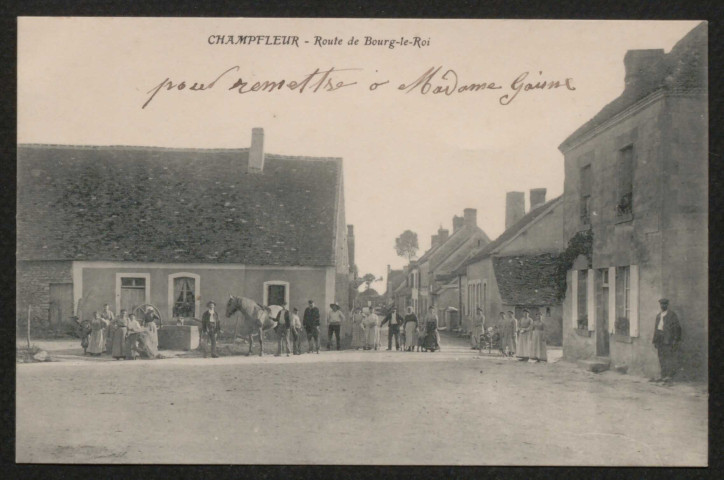 CHAMPFLEUR - Route de Bourg-le-Roi
pour remettre a Madame